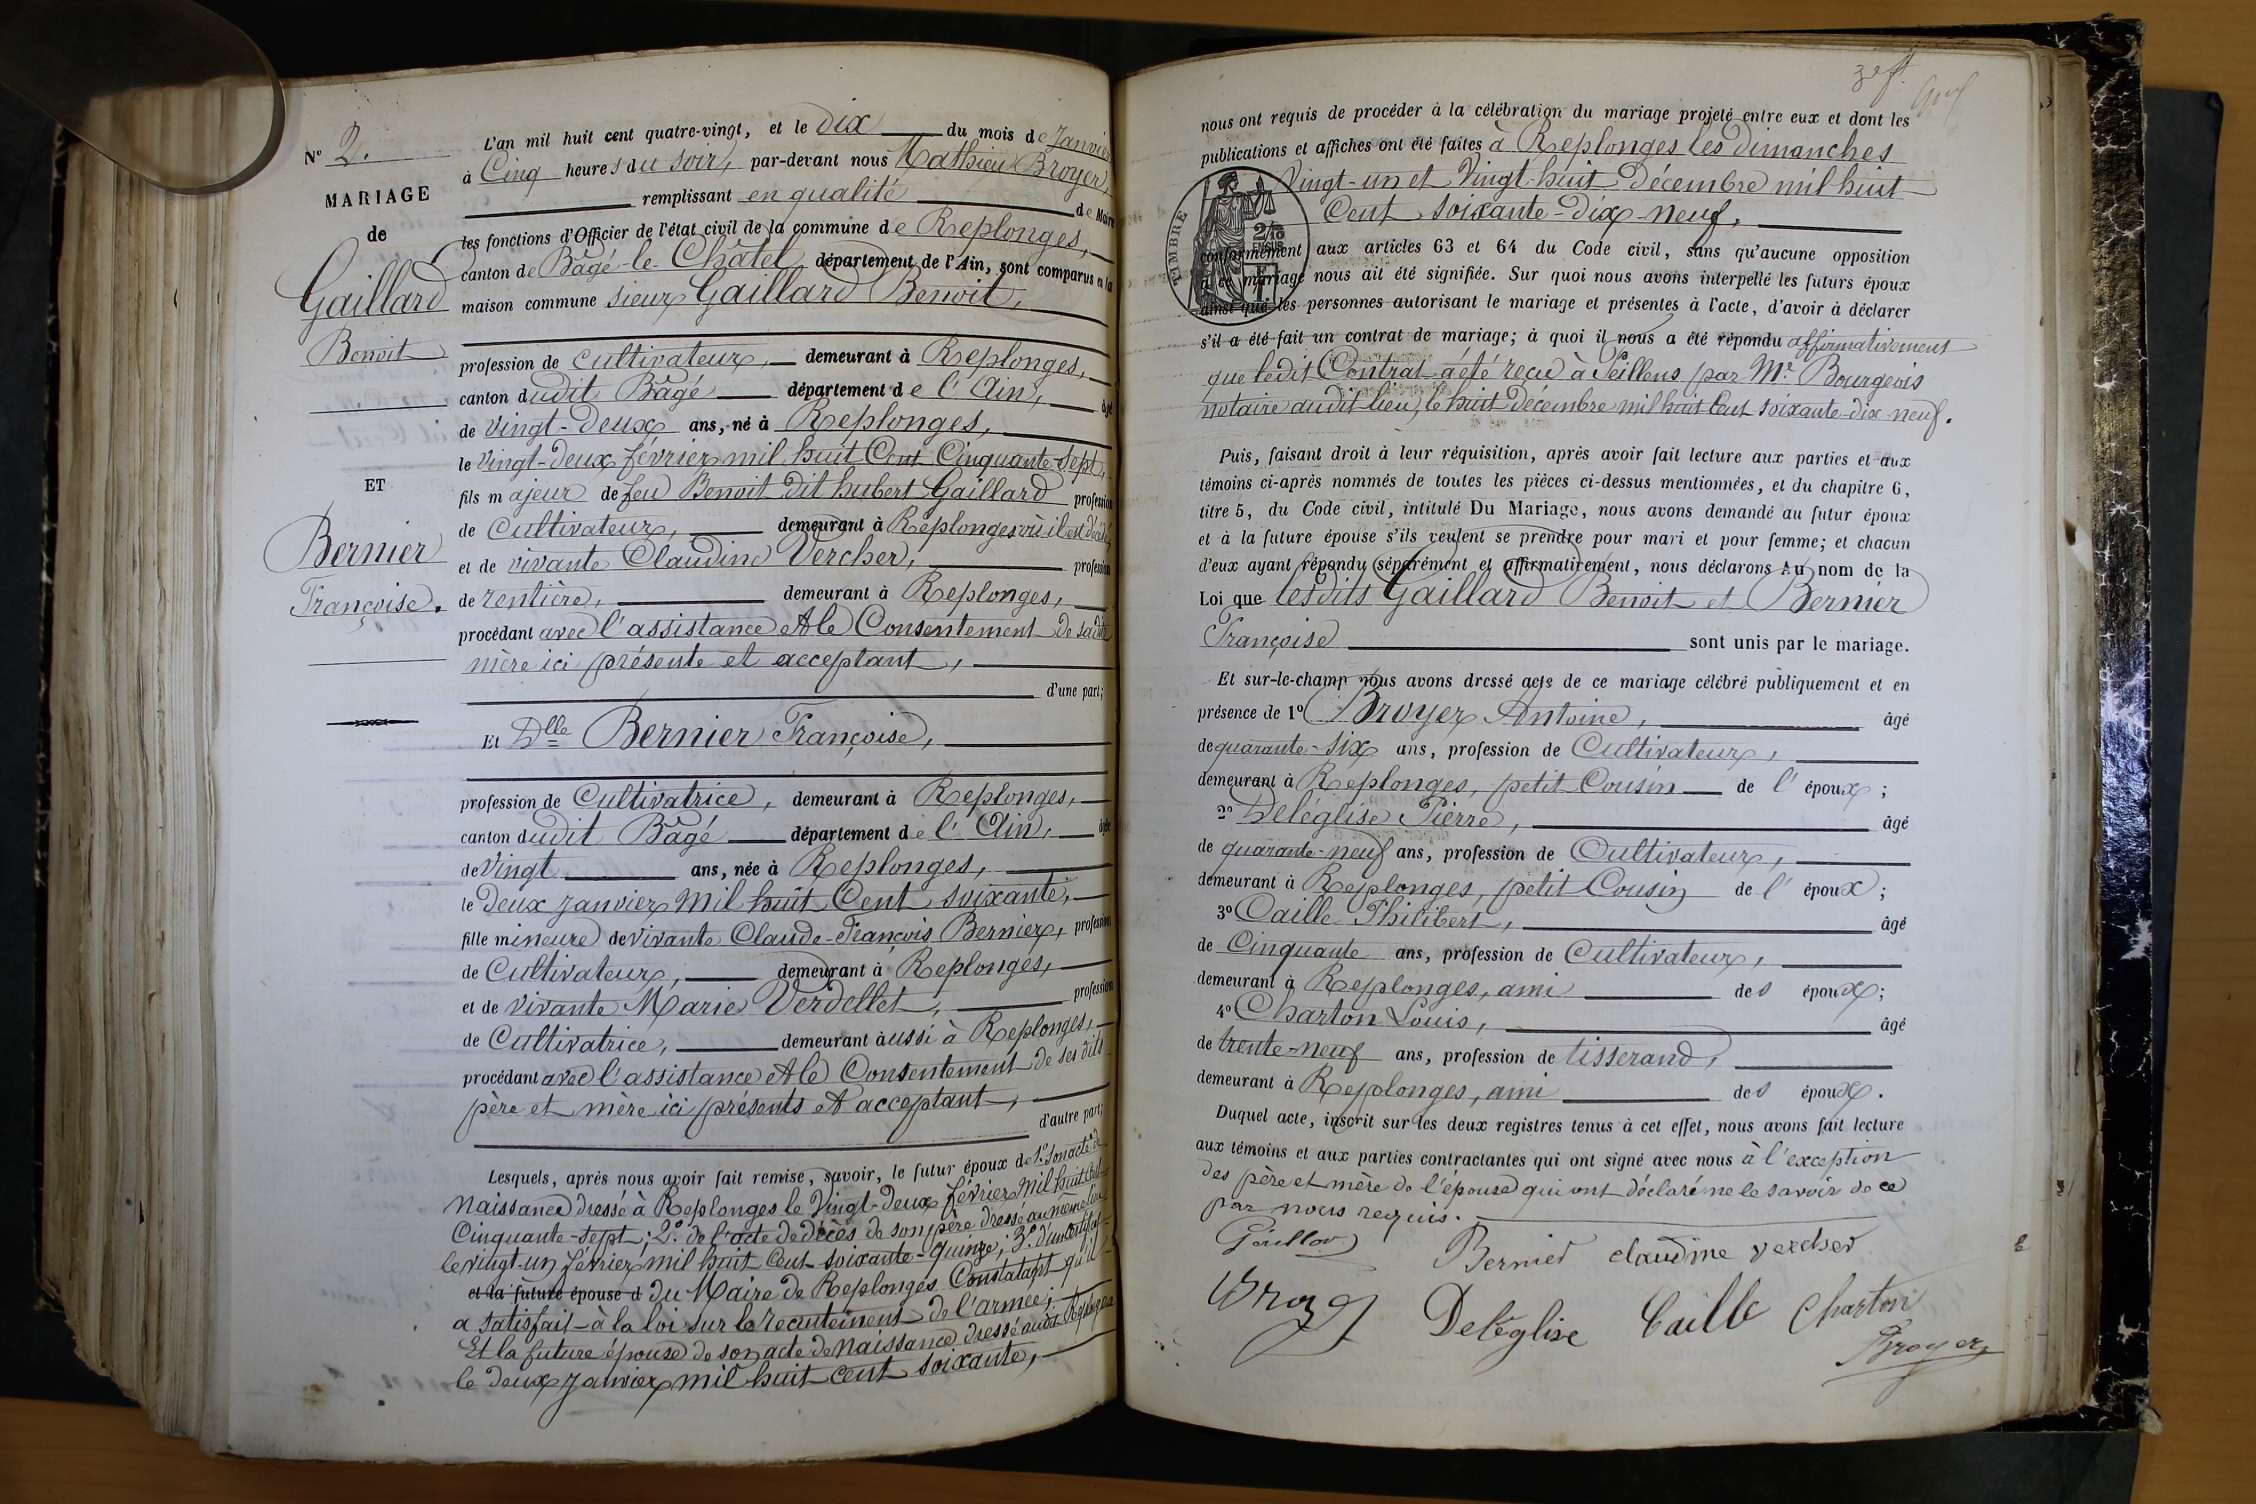 N° 2.
MARIAGE
de
Gaillard
Benoit
ET
Bernier
Françoise.
L'an mil huit cent quatre-vingt, et le dix du mois de Janvier
à Cinq heures du soir, par-devant nous Mathieu Broyer,
remplissant en qualité de Maire
les fonctions d'Officier de l'état civil de la commune de Replonges,
canton de Bâgé-le-Châtel département de l'Ain, sont comparus en la
maison commune sieur Gaillard Benoit,
profession de cultivateur, demeurant à Replonges,
canton dudit Bâgé département de l'Ain, âgé
de vingt-deux ans, né à Replonges,
le vingt-deux février mil huit Cent Cinquante-sept,
fils majeur de feu Benoit dit hubert Gaillard profession
de Cultivateur, demeurant à Replonges où il est décédé,
et de vivante Claudine Vercher, profession
de rentière, demeurant à Replonges,
procédant avec l'assistance et le Consentement de sadite
mère ici présente et acceptant,
d'une part;
Et Dlle Bernier Françoise,
profession de Cultivatrice, demeurant à Replonges,
canton dudit Bâgé département de l'Ain, âgée
de Vingt ans, née à Replonges,
le deux janvier mil huit Cent soixante,
fille mineure de vivante Claude-François Bernier, profession
de Cultivateur, demeurant à Replonges,
et de vivante Marie Verdellet, profession
de Cultivatrice, demeurant aussi à Replonges,
procédant avec l'assistance et le Consentement de ses dits
père et mère ici présents et acceptant,
d'autre part;
Lesquels, après nous avoir fait remise, savoir, le futur époux de 1° son acte de
Naissance dressé à Replonges le Vingt-deux février mil huit Cent
Cinquante-sept; 2° de l'acte de décès de son père dressé au même lieu
le vingt-un février mil huit Cent soixante-quinze; 3° d'un certificat
et la future épouse d du Maire de Replonges Constatant qu'il
a satisfait à la loi sur le recrutement de l'armée;
Et la future épouse de son acte de Naissance dressé audit Replonges
le deux janvier mil huit cent soixante,
3e f.
nous ont requis de procéder à la célébration du mariage projeté entre eux et dont les
publications et affiches ont été faites à Replonges les dimanches
Vingt-un et Vingt-huit Décembre mil huit
Cent soixante-dix-neuf,
TIMBRE
2/10
EN SUS
conformément aux articles 63 et 64 du Code civil, sans qu'aucune opposition
à ce mariage nous ait été signifiée. Sur quoi nous avons interpellé les futurs époux
ainsi que les personnes autorisant le mariage et présentes à l'acte, d'avoir à déclarer
s'il a été fait un contrat de mariage; à quoi il nous a été répondu affirmativement
que ledit Contrat a été reçu à Feillens par Me Bourgeois
notaire audit lieu, le huit Décembre mil huit Cent soixante-dix-neuf.
Puis, faisant droit à leur réquisition, après avoir fait lecture aux parties et aux
témoins ci-après nommés de toutes les pièces ci-dessus mentionnées, et du chapitre 6,
titre 5, du Code civil, intitulé Du Mariage, nous avons demandé au futur époux
et à la future épouse s'ils veulent se prendre pour mari et pour femme; et chacun
d'eux ayant répondu séparément et affirmativement, nous déclarons Au nom de la
Loi que lesdits Gaillard Benoit et Bernier
Françoise sont unis par le mariage.
Et sur-le-champ nous avons dressé acte de ce mariage célébré publiquement et en
présence de 1° Broyer Antoine, âgé
de quarante-six ans, profession de Cultivateur,
demeurant à Replonges, petit Cousin de l'époux;
2° Deléglise Pierre, âgé
de quarante-neuf ans, profession de Cultivateur,
demeurant à Replonges, petit Cousin de l'époux;
3° Caille Philibert, âgé
de Cinquante ans, profession de Cultivateur,
demeurant à Replonges, ami des époux;
4° Charton Louis, âgé
de trente-neuf ans, profession de tisserand,
demeurant à Replonges, ami des époux.
Duquel acte, inscrit sur les deux registres tenus à cet effet, nous avons fait lecture
aux témoins et aux parties contractantes qui ont signé avec nous à l'exception
des père et mère de l'épouse qui ont déclaré ne le savoir de ce
par nous requis.
Bernier claudine vercher
Deléglise Caille Charton
Broyer